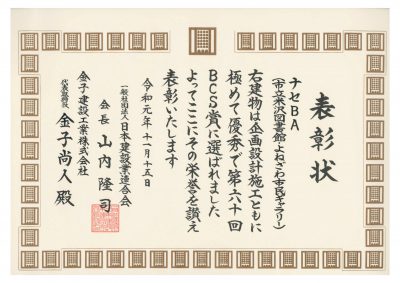 表彰状
ナセBA
(市立米沢図書館・よねざわ市民ギャラリー)
右建物は企画設計施工ともに
極めて優秀で第六十回
BCS賞に選ばれました
よってここにその栄誉を讃え
表彰いたします
令和元年十一月十五日
一般社団法人日本建設業連合会
会長 山内隆司
金子建設工業株式会社
代表取締役 金子尚人殿